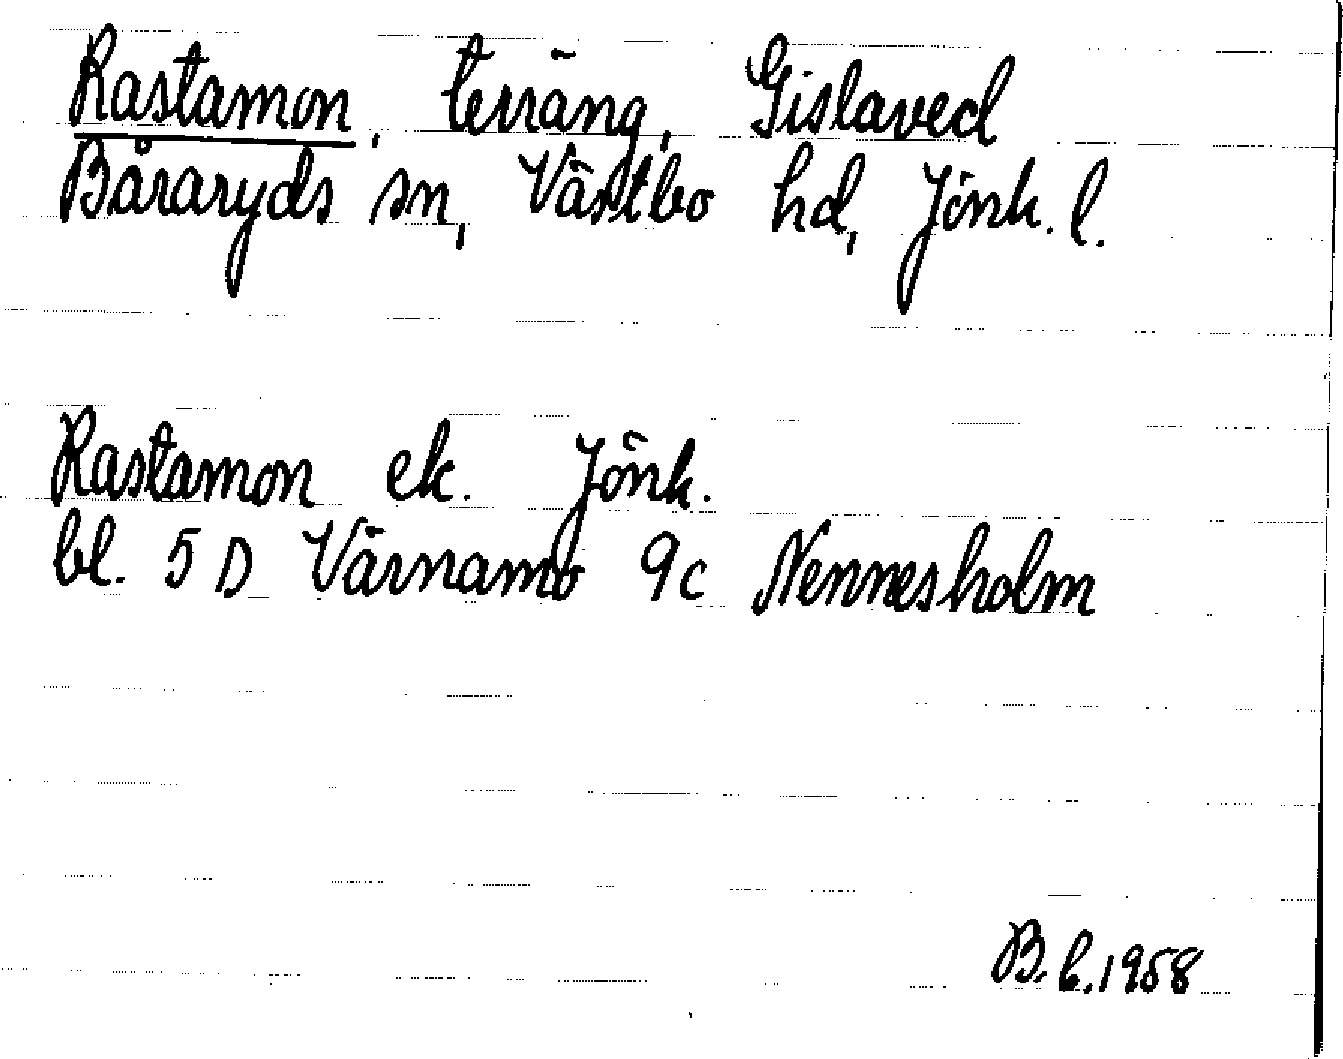 Rastamon, terräng, Gislaved
Båraryds sn, Västbo hd, Jönk. l.
Rastamon ek. Jönk.
bl. 5 D Värnamo 9c Nennesholm
B. b. 1958